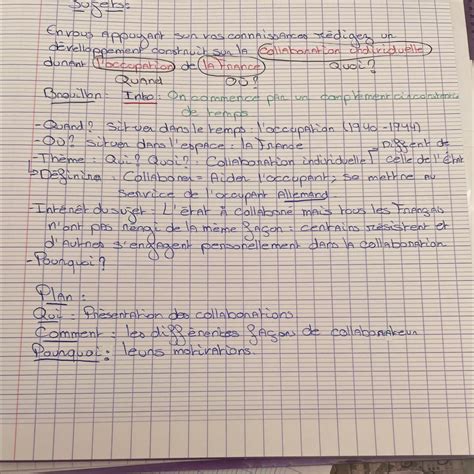 Sujets:
En vous appuyant sur vos connaissances rédigez un
développement construit sur la collaboration individuelle
durant l'occupation de la France Quoi?
Quand Où?
Brouillon: Intro: On commence par un complément circonstanciel
de temps
-Quand? Situer dans le temps: l'occupation (1940-1944)
-Où? Situer dans l'espace: la France
-Thème: Qui? Quoi?: Collaboration individuelle Different de celle de l'état
↳Définir: Collaborer = Aider l'occupant, se mettre au
service de l'occupant Allemand
-Intérêt du sujet: L'état à collaboré mais tous les Français
n'ont pas réagi de la même façon: certains résistent et
d'autres s'engagent personellement dans la collaboration
-Pourquoi?
Plan:
Qui: Présentation des collaborations
Comment: les différentes façons de collaborateur
Pourquoi: leurs motivations.